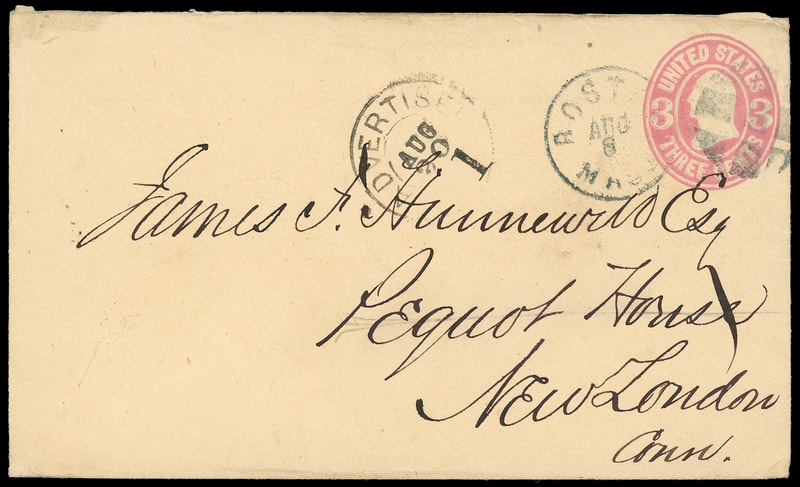 UNITED STATES
3 3
THREE
BOST
AUG
8
MASS
ADVERTISED
AUG
1
James F. Hunnewell Esq
Pequot House
New London
Conn.